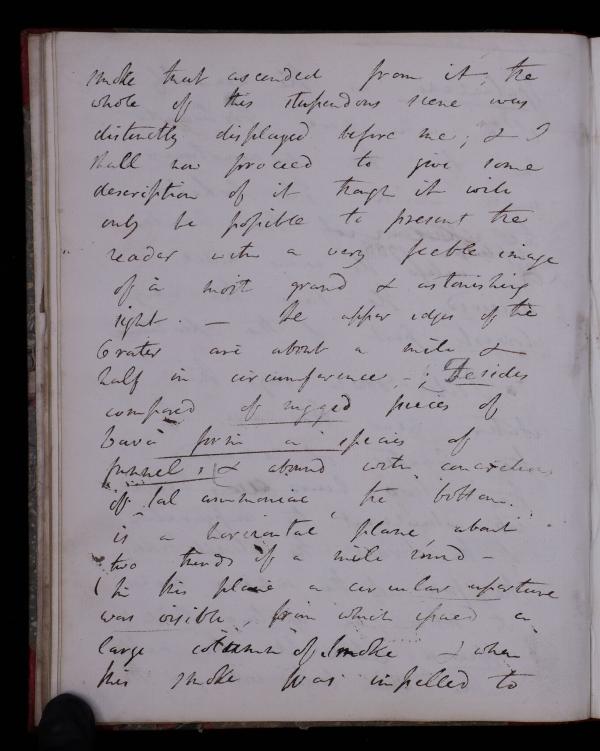 smoke that ascended from it, the
whole of this stupendous scene was
distinctly displayed before me; & I
shall now proceed to give some
description of it though it will
only be possible to present the
reader with a very feeble image
of a most grand & astonishing
sight. — The upper edges of the
Crater are about a mile &
half in circumference, -; The sides
composed of rugged pieces of
Lava form a species of
funnel, & abound with concretions
of sal ammoniac, the bottom
is a horizontal plane about
two thirds of a mile round -
(In this plane a circular aperture
was visible, from which issued a
large column of smoke & when
this smoke was impelled to